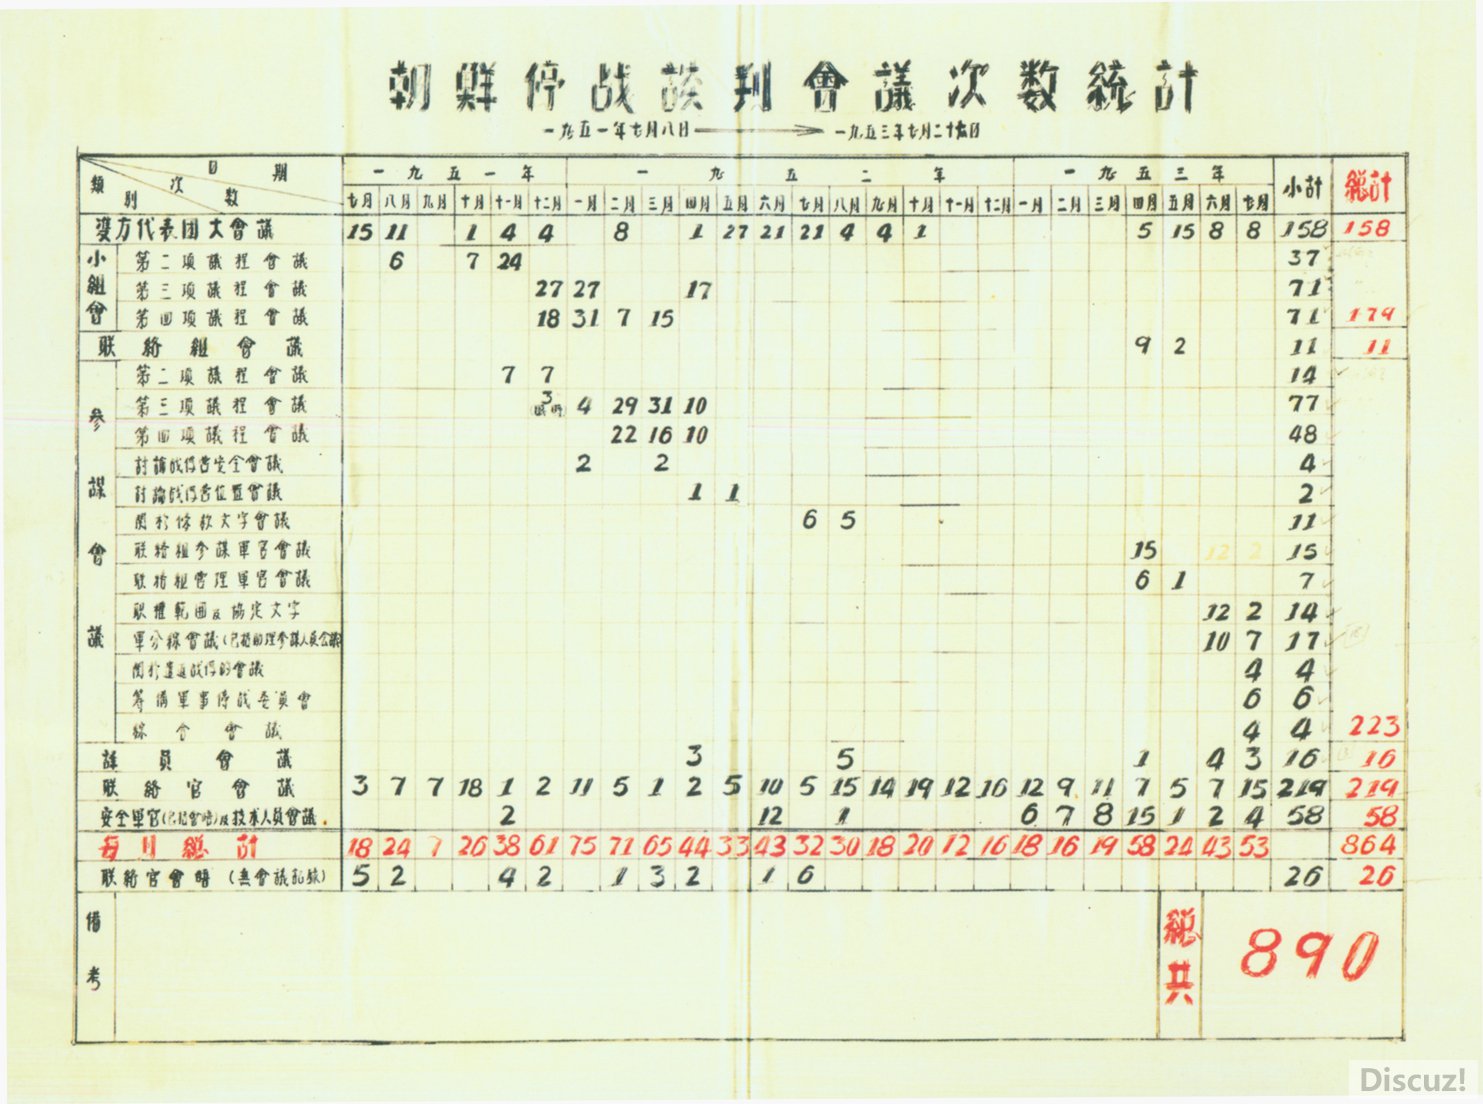 朝鮮停战談判會議次数統計
一九五一年七月八日 → 一九五三年七月二十五日
日期 次数 類別 一九五一年 一九五二年 一九五三年 小計 總計
七月 八月 九月 十月 十一月 十二月 一月 二月 三月 四月 五月 六月 七月 八月 九月 十月 十一月 十二月 一月 二月 三月 四月 五月 六月 七月
雙方代表团大會議 15 11 1 4 4 8 1 27 21 21 4 4 1 5 15 8 8 158 158
小組會
第二項議程會議 6 7 24 37
第三項議程會議 27 27 17 71
第四項議程會議 18 31 7 15 71 179
联絡組會議 9 2 11 11
参謀會議
第二項議程會議 7 7 14
第三項議程會議 3 4 29 31 10 77
第四項議程會議 22 16 10 48
討論战俘营安全會議 2 2 4
討論战俘营位置會議 1 1 2
関於條款文字會議 6 5 11
联絡組参謀軍官會議 15 12 2 15
联絡組管理軍官會議 6 1 7
职權範囲及協定文字 12 2 14
軍分線會議(已括助理参謀人員会議) 10 7 17
関於遣返战俘的會議 4 4
筹備軍事停战委員會 6 6
綜合會議 4 4 223
譯員會議 3 5 1 4 3 16 16
联絡官會議 3 7 7 18 1 2 11 5 1 2 5 10 5 15 14 19 12 16 12 9 11 7 5 7 15 219 219
安全軍官(已括會晤)及技术人員會議. 2 12 1 6 7 8 15 1 2 4 58 58
每月總計 18 24 7 26 38 61 75 71 65 44 33 43 32 30 18 20 12 16 18 16 19 58 24 43 53 864
联絡官會晤(無會議記録) 5 2 4 2 1 3 2 1 6 26 26
備考
總共 890
Discuz!